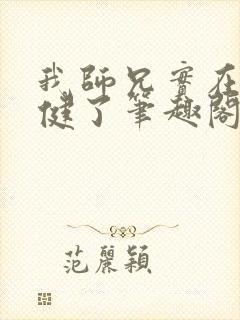 我師兄實在
健了筆趣閣
范麗穎